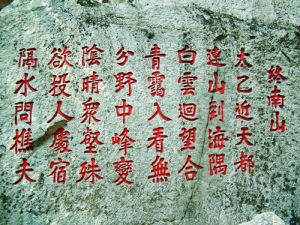 終南山
太乙近天都
連山到海隅
白雲迴望合
青靄入看無
分野中峰變
陰晴衆壑殊
欲投人處宿
隔水問樵夫